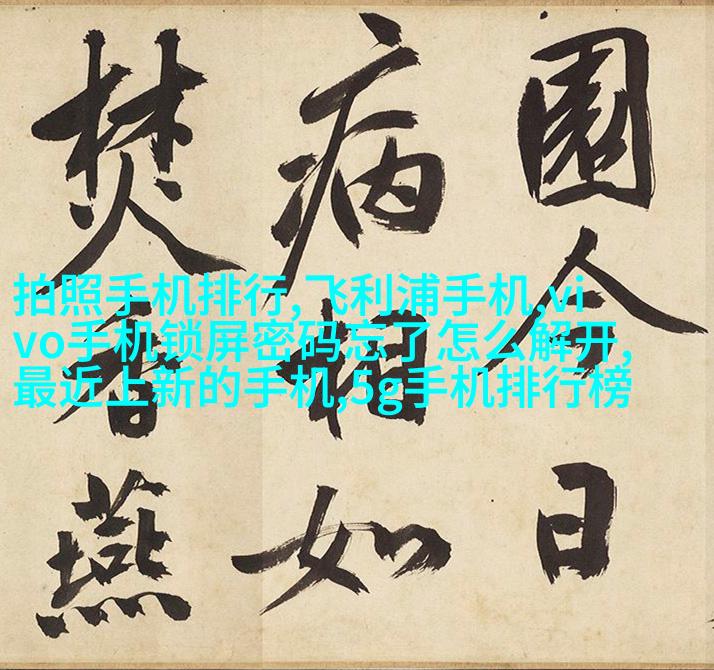 園今日
病相如
焚香燕
拍照手机排行,飞利浦手机,vi
vo手机锁屏密码忘了怎么解开,
最近上新的手机,5g手机排行榜